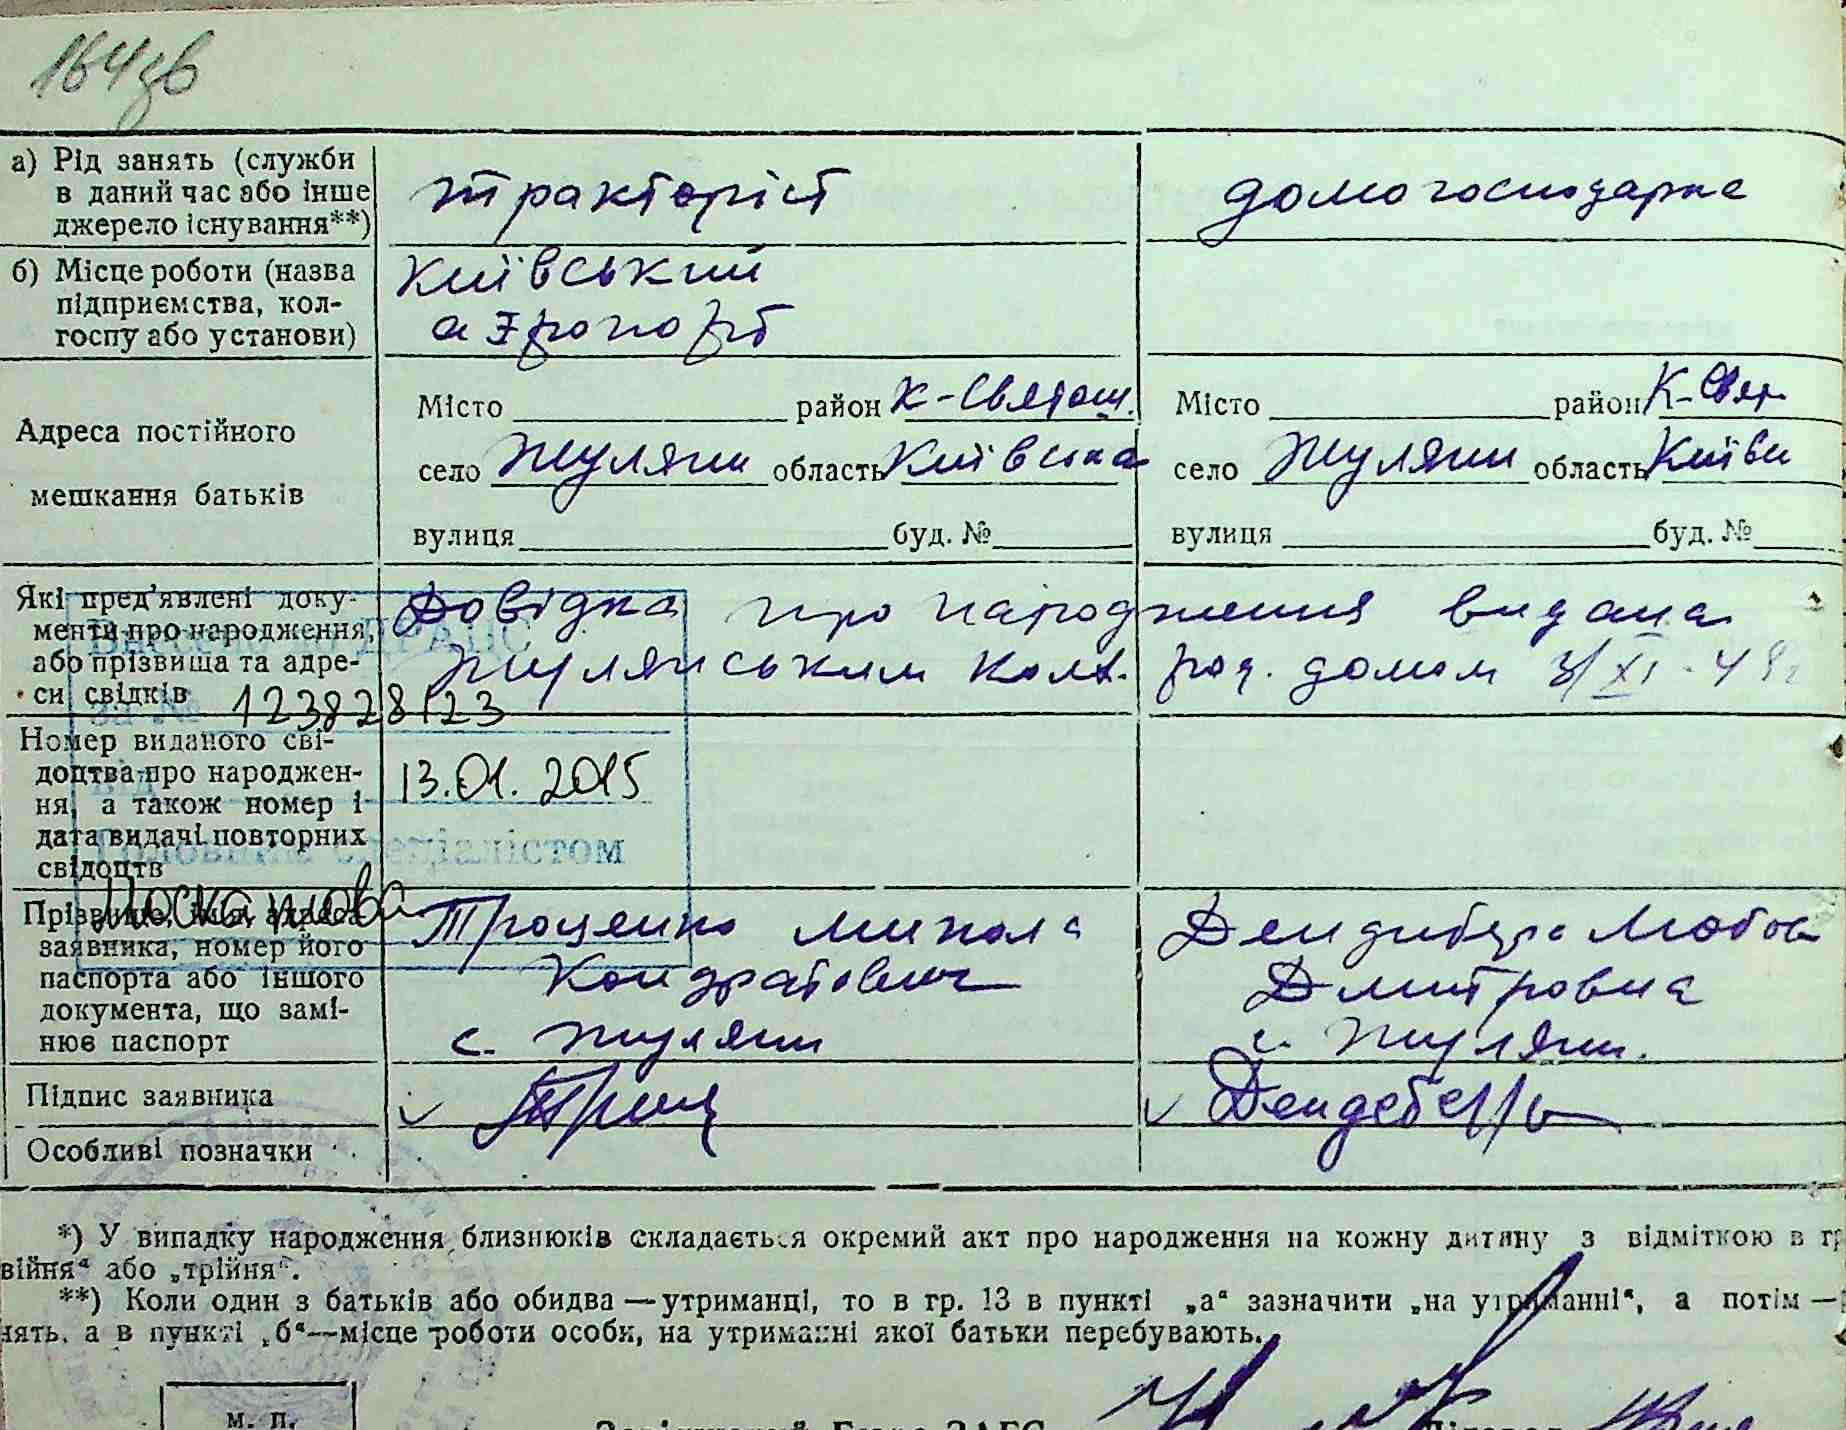 164зв
а) Рід занять (служби в даний час або інше джерело існування**)
тракторіст
домогосподарка
б) Місце роботи (назва підприємства, колгоспу або установи)
Київський
аэропорт
Адреса постійного мешкання батьків
Місто район К-Святош.
село Жуляни область Київська
вулиця буд. №
Місто район К-Свят.
село Жуляни область Київськ
вулиця буд. №
Які пред'явлені документи про народження, або прізвища та адреси свідків
Довідка про народження видана
Жулянським колг. род. домом 3/XI-49
Внесено до ДРАЦС
за № 123828123
Номер виданого свідоцтва про народження, а також номер і дата видачі повторних свідоцтв
від 13.01.2015
Головним спеціалістом
Прізвище, ім'я, адреса заявника, номер його паспорта або іншого документа, що замінює паспорт
Троценко Микола
Кондратович
с. Жуляни
Дендибера Любов
Дмитровна
с. Жуляни.
Підпис заявника
Дендебера
Особливі позначки
*) У випадку народження близнюків складається окремий акт про народження на кожну дитину з відміткою в гр
війня“ або „трійня“.
**) Коли один з батьків або обидва — утриманці, то в гр. 13 в пункті „а“ зазначити „на утриманні“, а потім —
нять, а в пункті „б“—місце роботи особи, на утриманні якої батьки перебувають.
м. п.
Завідуючий Бюро ЗАГС
Діловод